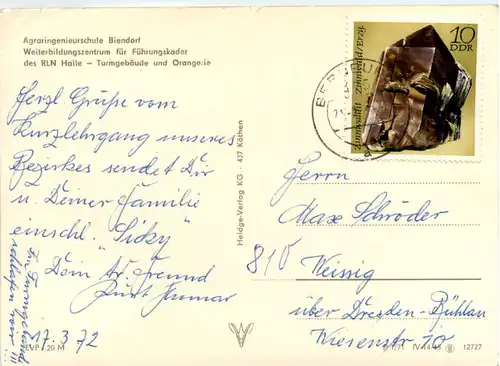 Agraringenieurschule Biendorf
Weiterbildungszentrum für Führungskader
des RLN Halle – Turmgebäude und Orangerie
Herzl. Grüße vom
Kurzlehrgang unseres
Bezirkes sendet Dir
u. Deiner Familie
einschl. "Sicky"
Dein tr. Freund
Kurt
17. 3. 72
Im Turmgebäude
schlafen wir !!!
EVP -.20 M
Heldge-Verlag KG · 437 Köthen
10
DDR
Zinnwaldit Zinnwald/Erzg.
Herrn
Max Schröder
810 Weissig
über Dresden-Bühlau
Wiesenstr. 10
IV-14-45 12727